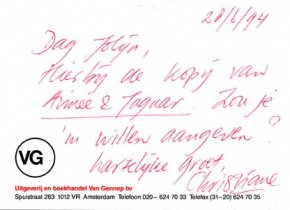 28/6/94
Dag Jolijn,
Hierbij de kopij van
Aimee & Jaguar. Zou je
'm willen aangeven?
hartelijke groet
Christiane
VG
Uitgeverij en boekhandel Van Gennep bv
Spuistraat 283 1012 VR Amsterdam Telefoon 020 – 624 70 33 Telefax (31–20) 624 70 35